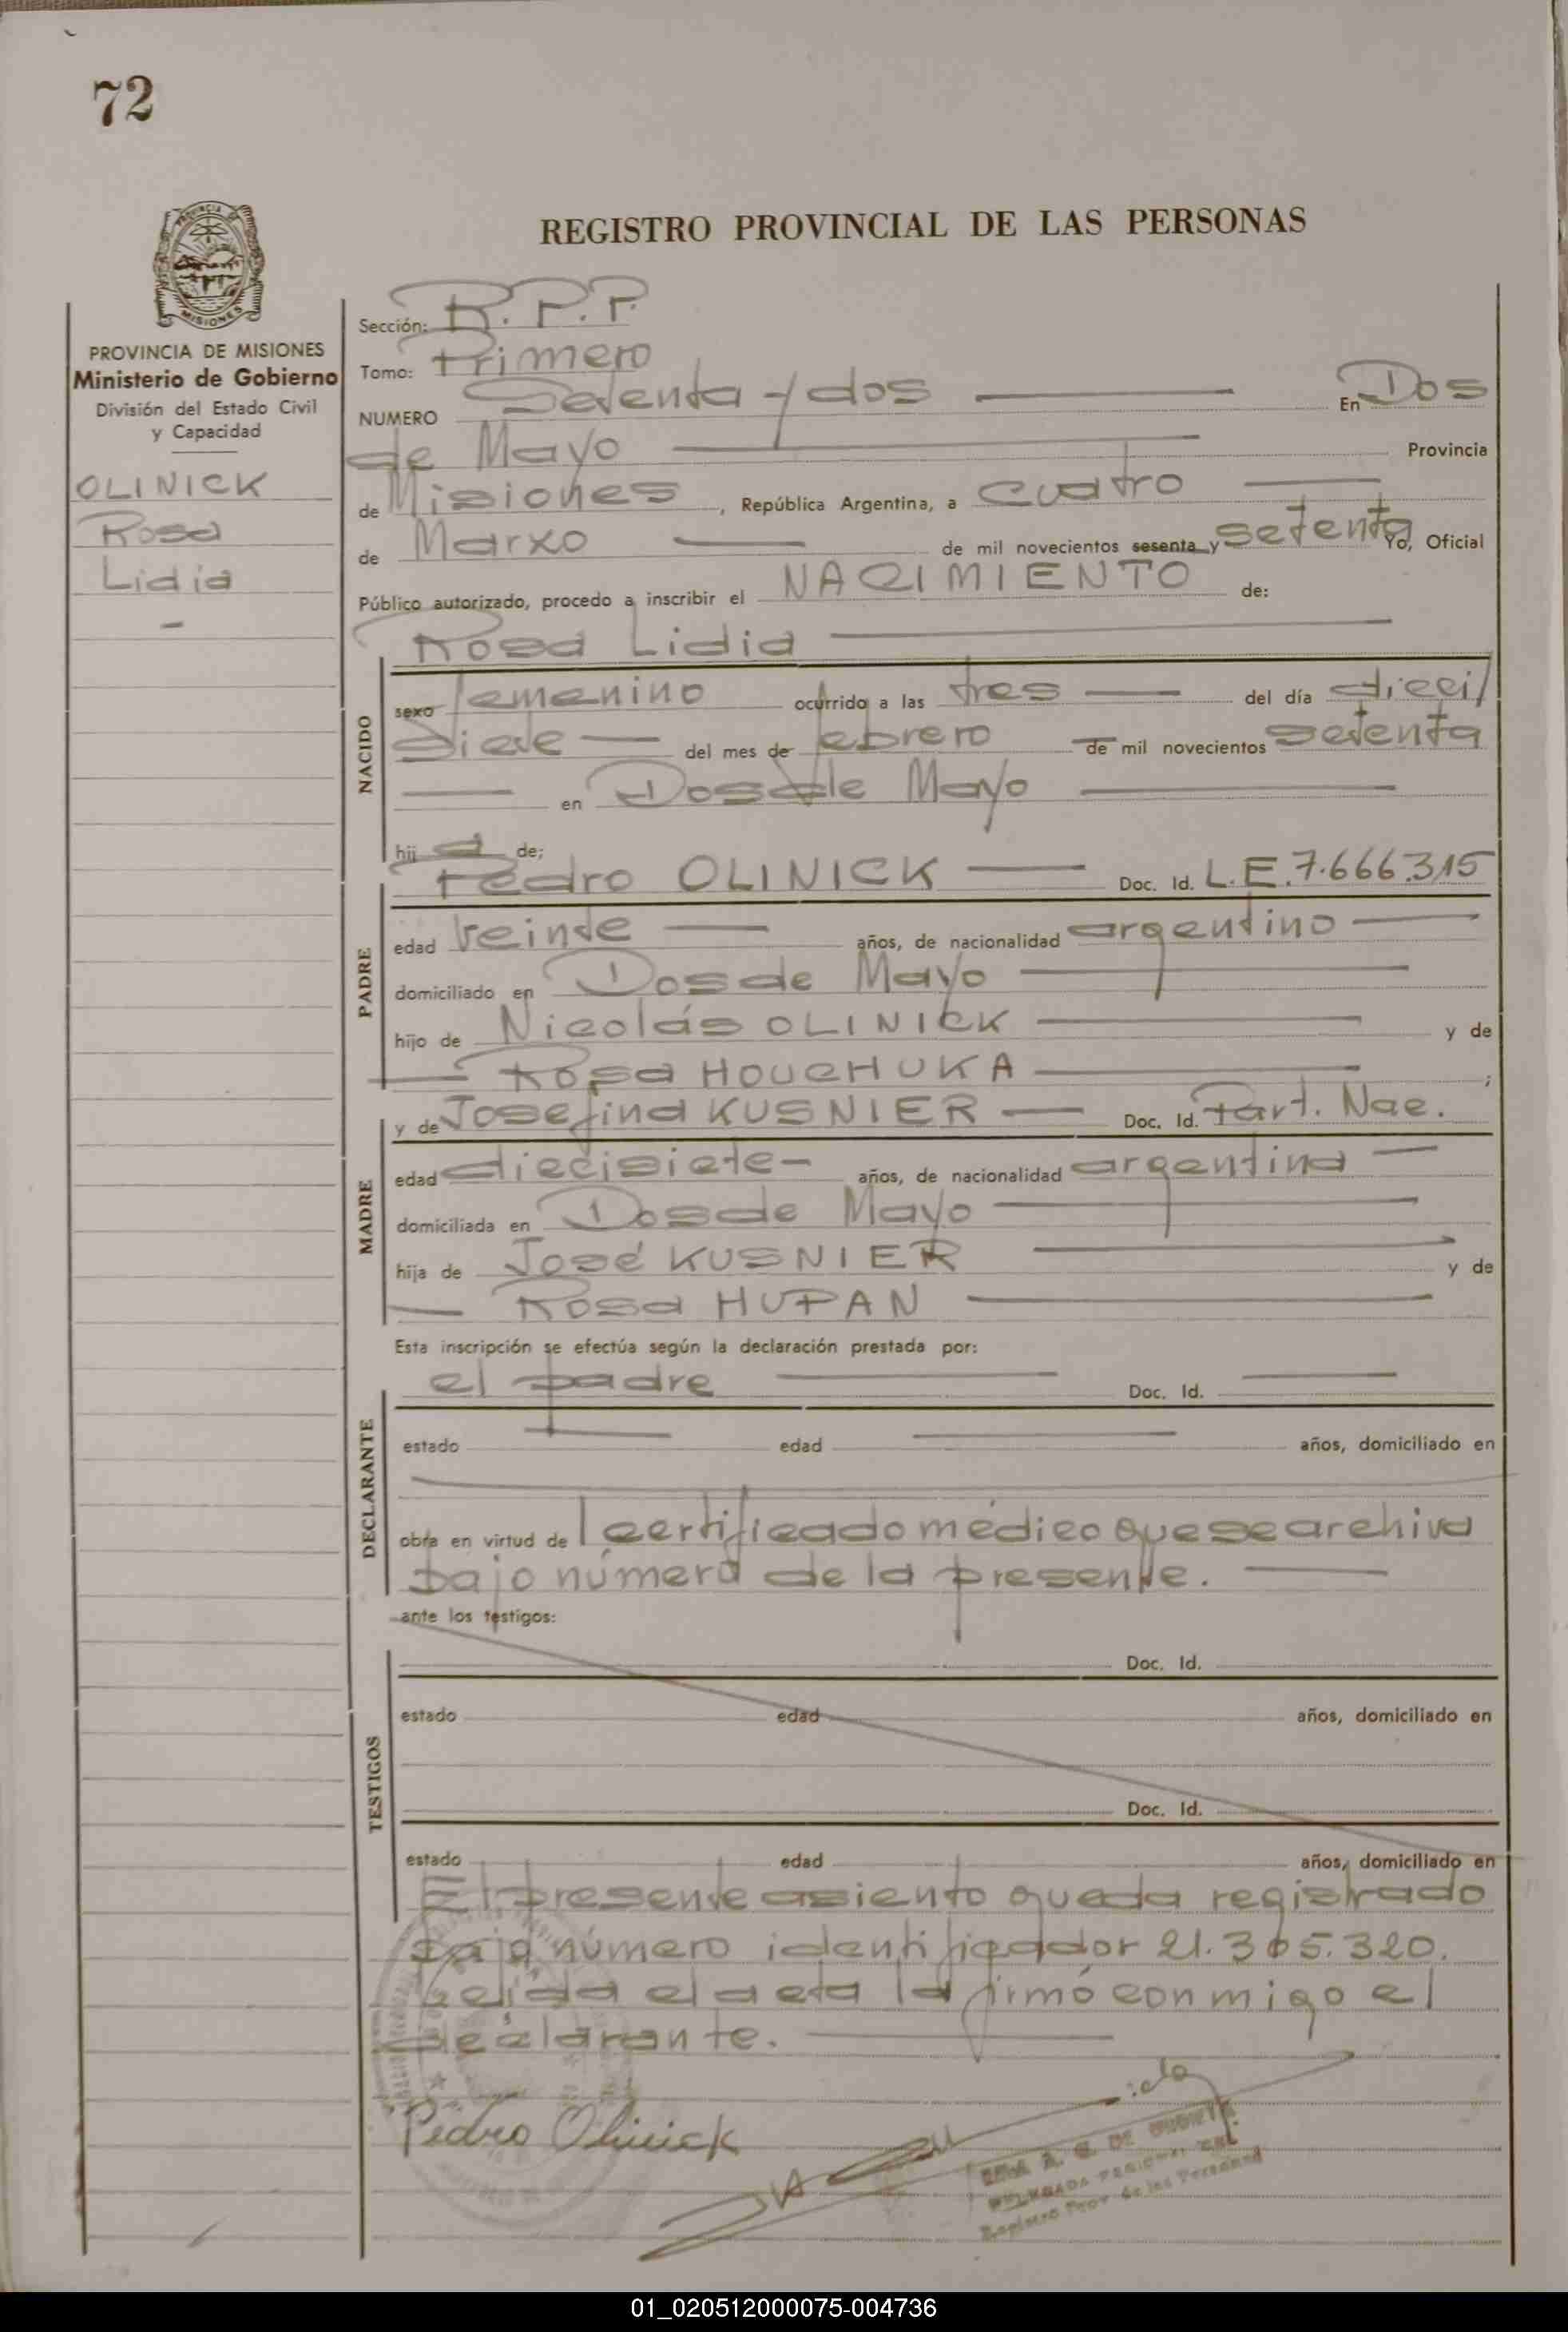 72
REGISTRO PROVINCIAL DE LAS PERSONAS
PROVINCIA DE MISIONES
Ministerio de Gobierno
División del Estado Civil
y Capacidad
OLINICK
Rosa
Lidia
Sección: R.P.P.
Tomo: Primero
NUMERO Setenta y dos En Dos
de Mayo Provincia
de Misiones, República Argentina, a cuatro
de Marzo de mil novecientos sesenta y setenta Yo, Oficial
Público autorizado, procedo a inscribir el NACIMIENTO de:
Rosa Lidia
NACIDO
sexo femenino ocurrido a las tres del día dieci
siete del mes de febrero de mil novecientos setenta
en Dos de Mayo
hij a de;
Pedro OLINICK Doc. Id. L.E. 7.666.315
PADRE
edad veinte años, de nacionalidad argentino
domiciliado en Dos de Mayo
hijo de Nicolás OLINICK y de
Rosa HOUCHUKA ;
y de Josefina KUSNIER Doc. Id. Part. Nac.
MADRE
edad diecisiete años, de nacionalidad argentina
domiciliada en Dos de Mayo
hija de José KUSNIER y de
Rosa HUPAN
Esta inscripción se efectúa según la declaración prestada por:
el padre Doc. Id.
DECLARANTE
estado edad años, domiciliado en
obra en virtud de l certificado médico que se archiva
bajo número de la presente.
ante los testigos:
TESTIGOS
Doc. Id.
estado edad años, domiciliado en
Doc. Id.
estado edad años, domiciliado en
El presente asiento queda registrado
bajo número identificador 21.305.320.
Leída el acta la firmó conmigo el
declarante.
Pedro Olinick
Registro Prov. de las Personas
01_020512000075-004736